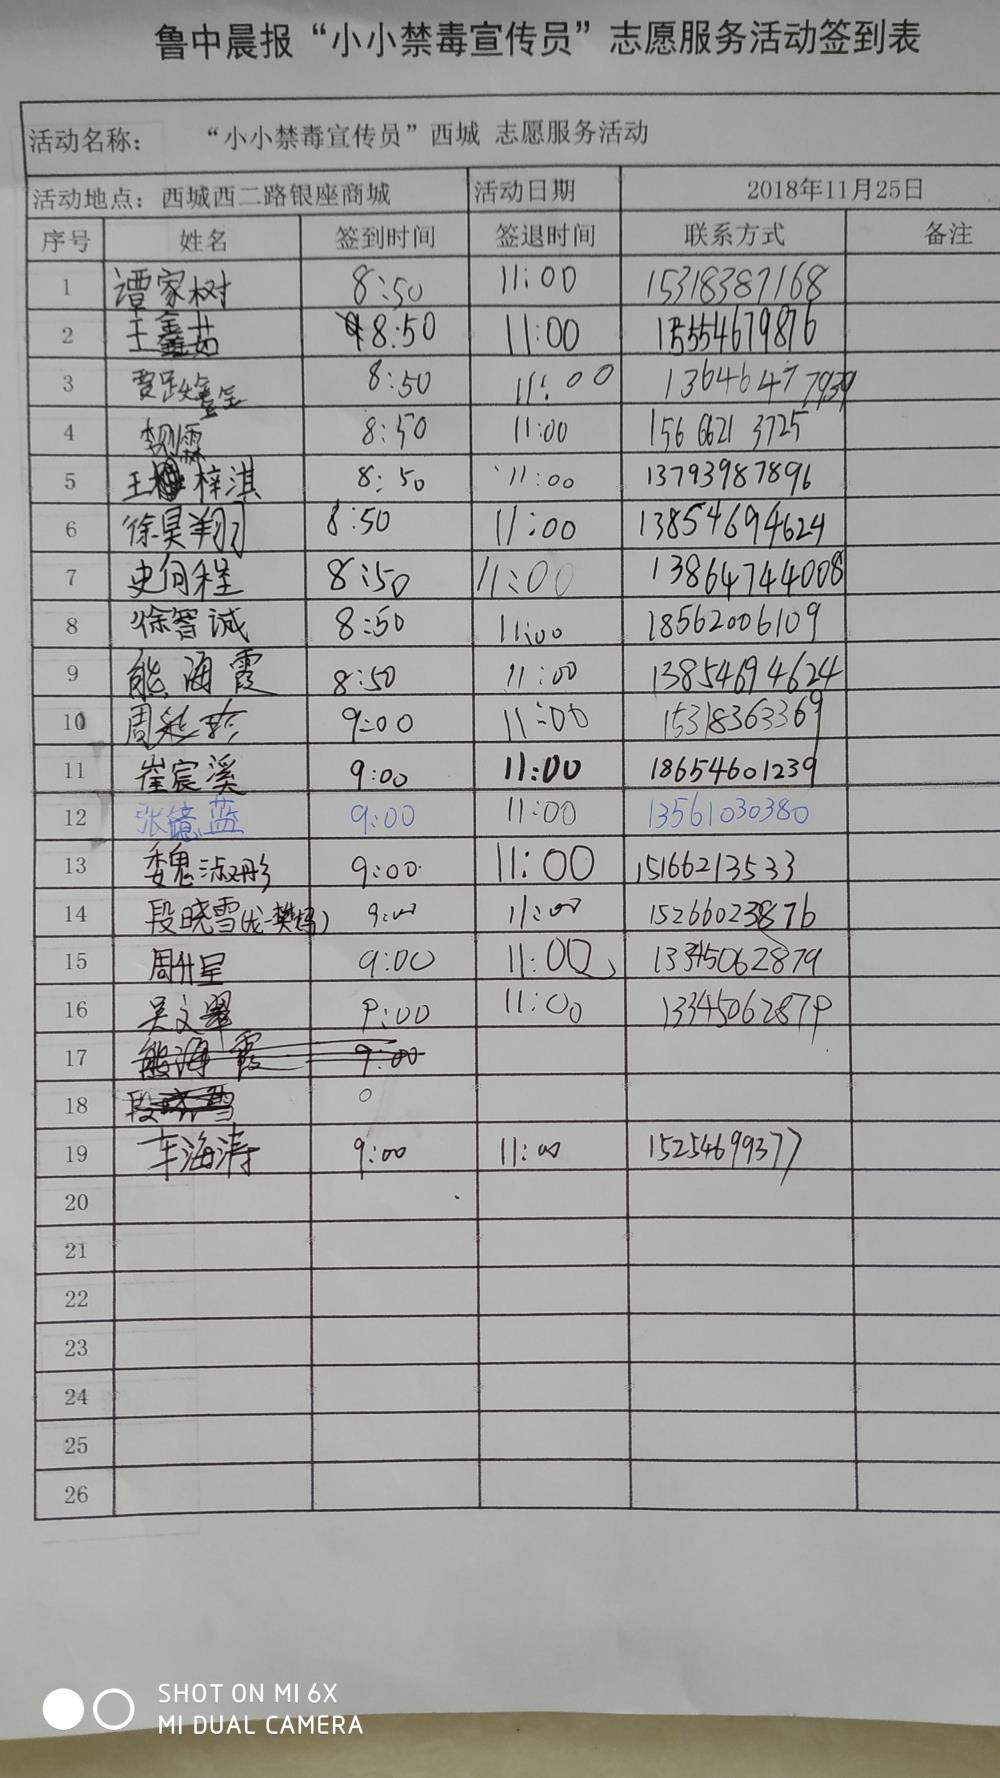 鲁中晨报“小小禁毒宣传员”志愿服务活动签到表
活动名称： “小小禁毒宣传员”西城 志愿服务活动
活动地点：西城西二路银座商城 活动日期 2018年11月25日
序号 姓名 签到时间 签退时间 联系方式 备注
1 谭家树 8:50 11:00 15318387168
2 王鑫茹 8:50 11:00 15554679876
3 8:50 11:00 13646477939
4 8:50 11:00 156 6621 3725
5 王梓淇 8:50 11:00 13793987896
6 徐昊翔 8:50 11:00 13854694624
7 史向程 8:50 11:00 13864744008
8 徐智诚 8:50 11:00 18562006109
9 熊海霞 8:50 11:00 13854694624
10 周彩珍 9:00 11:00 15318363369
11 崔宸溪 9:00 11:00 18654601239
12 张镱蓝 9:00 11:00 13561030380
13 魏淑彤 9:00 11:00 15166213533
14 段晓雪(龙一樊妈) 9:00 11:00 15266023876
15 周升呈 9:00 11:00 13345062879
16 吴文翠 9:00 11:00 13345062879
17 熊海霞 9:00
18 段晓雪
19 车海涛 9:00 11:00 15254699377
20
21
22
23
24
25
26
SHOT ON MI 6X
MI DUAL CAMERA